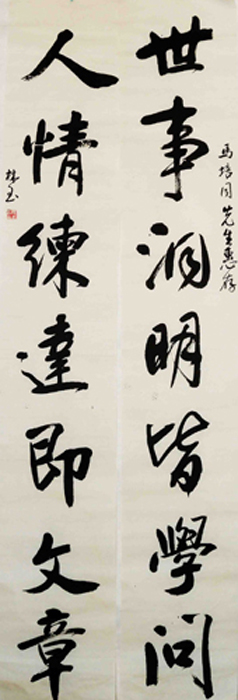 世事洞明皆學問
馬培同先生惠存
人情練達即文章